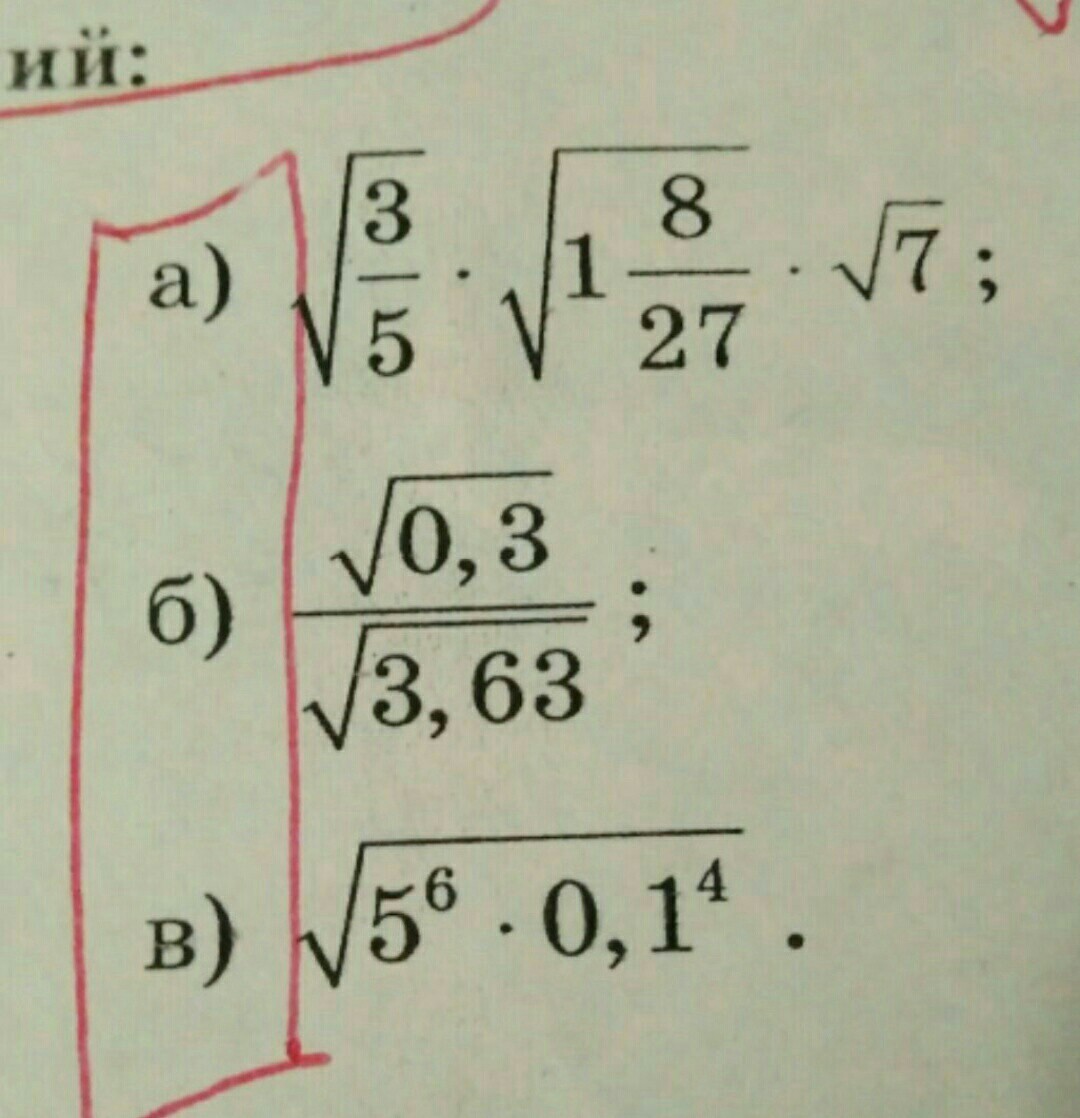 ий:
а) √(3/5) · √(1 8/27) · √7 ;
б) √0,3 / √3,63 ;
в) √(5⁶ · 0,1⁴) .